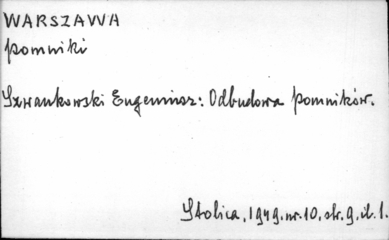 WARSZAWA
pomniki
Szwankowski Eugeniusz: Odbudowa pomników.
Stolica, 1949. nr. 10. str. 9. il. 1.